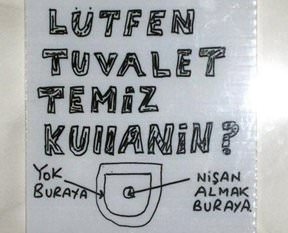 LÜTFEN
TUVALET
TEMİZ
KULLANİN?
YOK
BURAYA
NİŞAN
ALMAK
BURAYA